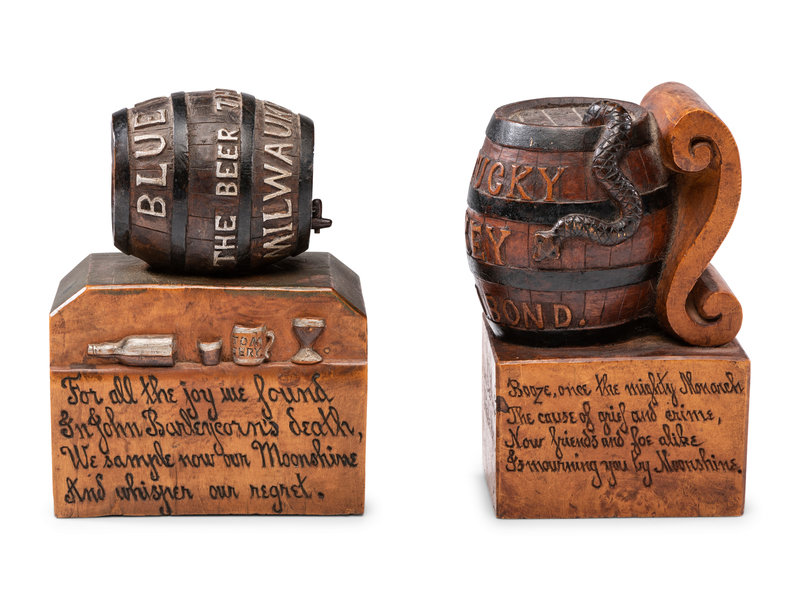 BLUE
THE BEER TH
MILWAUK
TOM
For all the joy we found
In John Barleycorn's death,
We sample now our Moonshine
And whisper our regret.
UCKY
EY
BOND.
Booze, once the mighty Monarch
The cause of grief and crime,
Now friends and foe alike
Is mourning you by Moonshine.